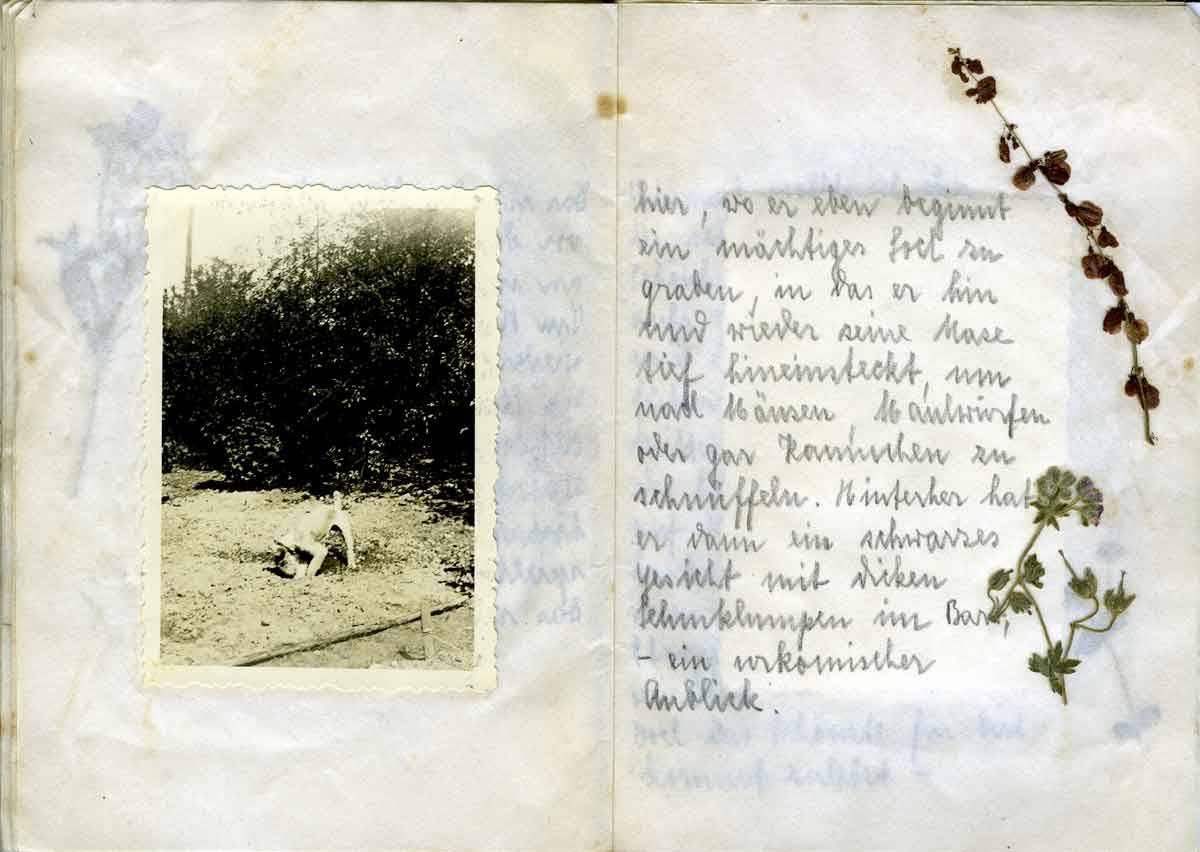 hier, wo er eben beginnt
ein mächtiges Loch zu
graben, in das er hin
und wieder seine Nase
tief hineinsteckt, um
nach Mäusen, Maulwürfen
oder gar Kaninchen zu
schnüffeln. Hinterher hat
er dann ein schwarzes
Gesicht mit dicken
Lehmklumpen im Bart,
– ein urkomischer
Anblick.